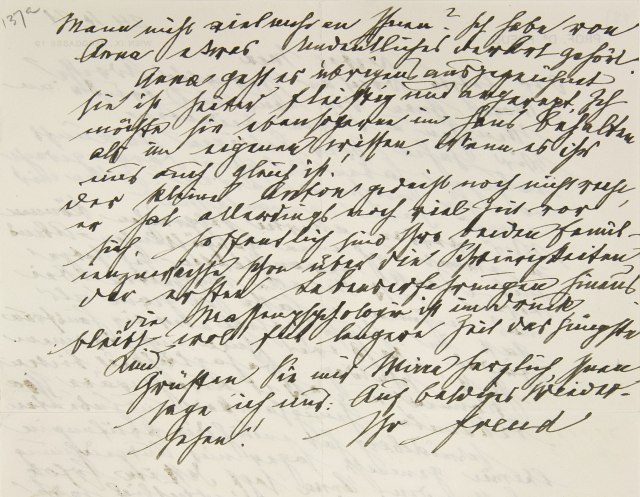 137a
Mann nicht vielmehr an Ihnen? Ich habe von
Anna etwas Undeutliches derart gehört.
Anna geht es übrigens ausgezeichnet
sie ist heiter fleissig und angeregt. Ich
möchte sie ebensogern im Haus behalten
als im eigenen wissen. Wenn es ihr
nur auch gleich ist!
Der kleine Anton gedeiht noch nicht recht,
er hat allerdings noch viel Zeit vor
sich. Hoffentlich sind Ihre beiden Famil-
schon über die Schwierigkeiten
der ersten Lebenserfahrungen hinaus
Die Massenpsychologie ist im Druck
bleibt wol für längere Zeit das jüngste
Kind
Grüssen Sie mir Mirra herzlich Ihnen
sage ich nur: Auf baldiges Wieder-
sehen!
Ihr Freud